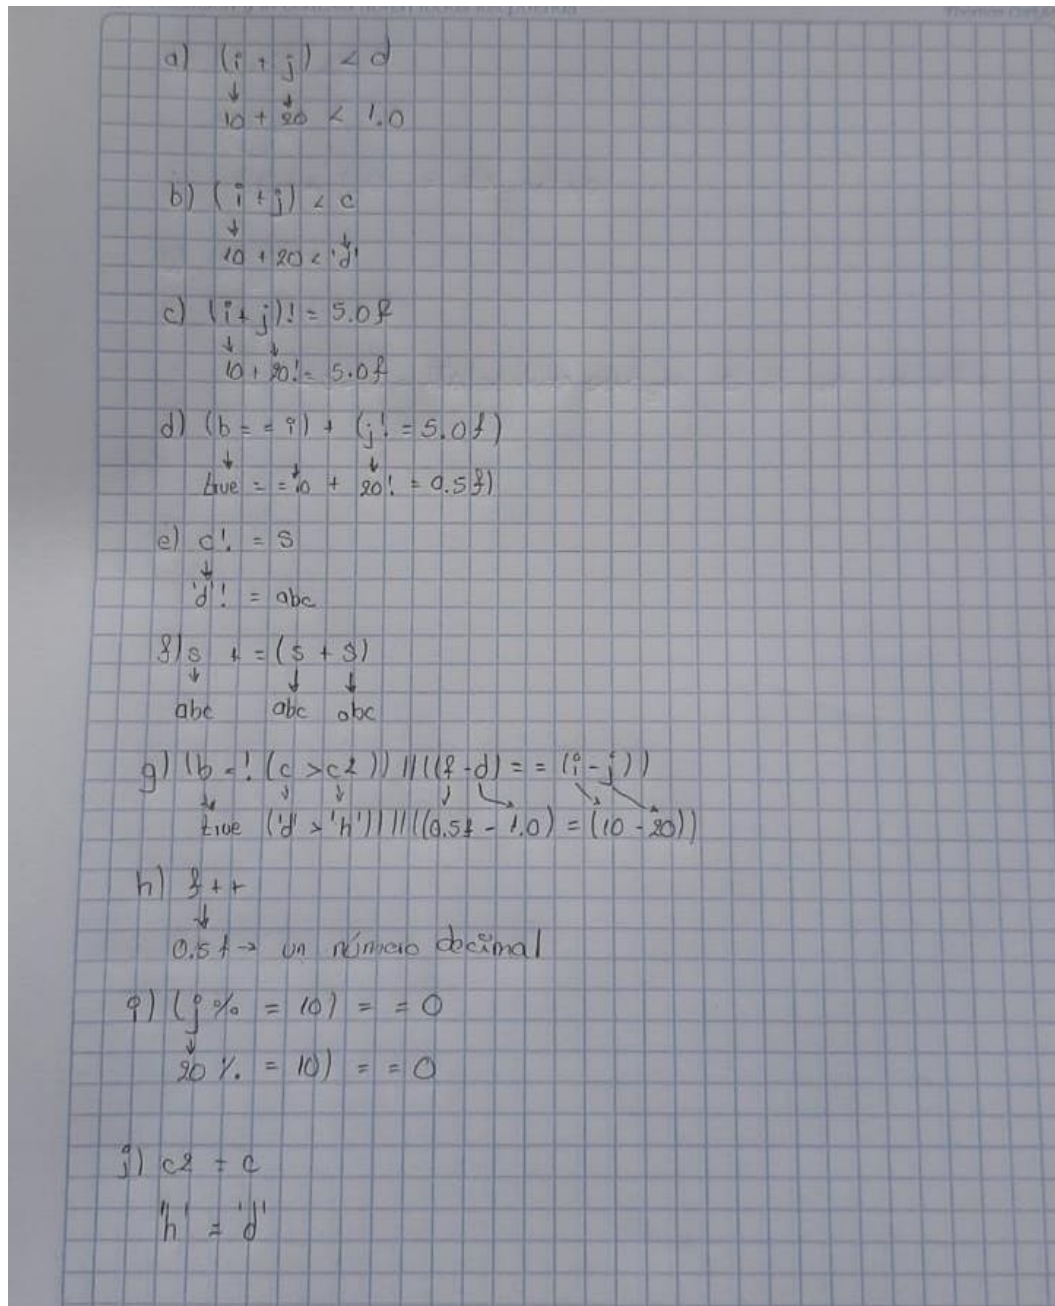 a) (i + j) < d
10 + 20 < 1.0
b) (i + j) < c
10 + 20 < 'd'
c) (i + j)! = 5.0f
10 + 20! = 5.0f
d) (b = = i) + (j! = 5.0f)
true = = 10 + 20! = 0.5f)
e) c! = s
'd'! = abc
f) s + = (s + s)
abc abc abc
g) (b =! (c > c2)) || ((f - d) = = (i - j))
true ('d' > 'h')) || ((0.5f - 1.0) = (10 - 20))
h) f + +
0.5f → un número decimal
i) (j % = 10) = = 0
20 % = 10) = = 0
j) c2 = c
'h' = 'd'